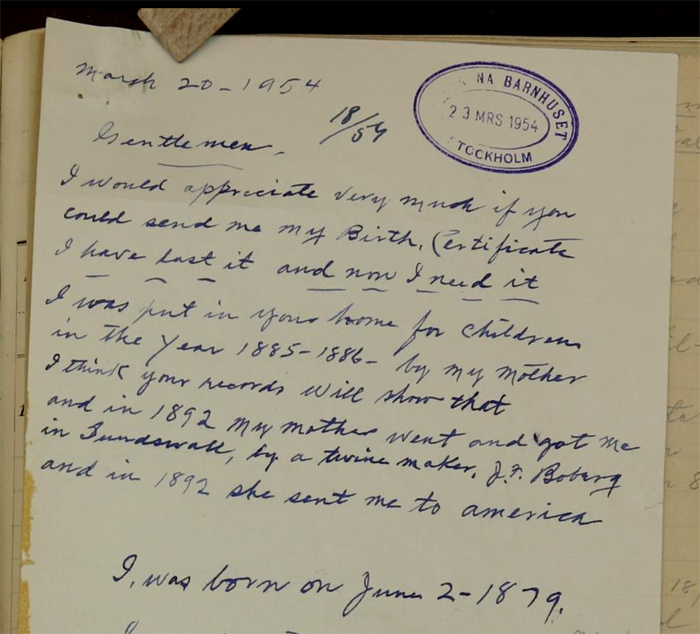 March 20-1954
NA BARNHUSET
23 MRS 1954
TOCKHOLM
18/54
Gentlemen.
I would appreciate very much if you
could send me my Birth, Certificate
I have lost it and now I need it
I was put in your home for Childrens
in the year 1885-1886- by my Mother
I think your records will show that
and in 1892 my mother went and got me
in Sundswall, by a twine maker, J.F. Boberg
and in 1892 she sent me to america
I, was born on June 2-1879.